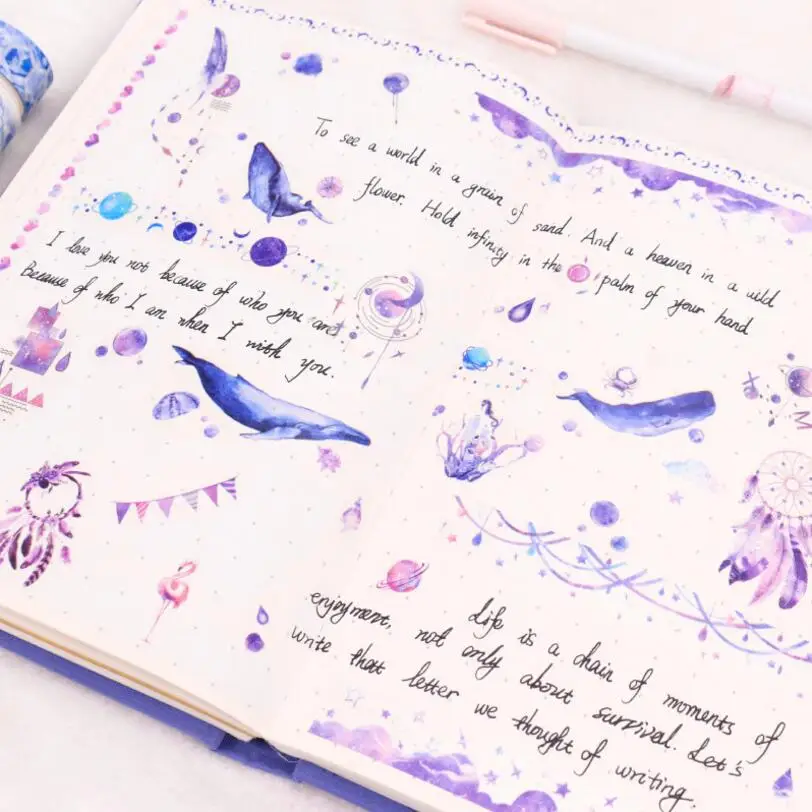 I love you not because of who you are
Because of who I am when I with you.
To see a world in a grain of sand. And a heaven in a wild
flower. Hold infinity in the palm of your hand
Life is a chain of moments of
enjoyment, not only about survival. Let's
write thatt letter we thought of writing.